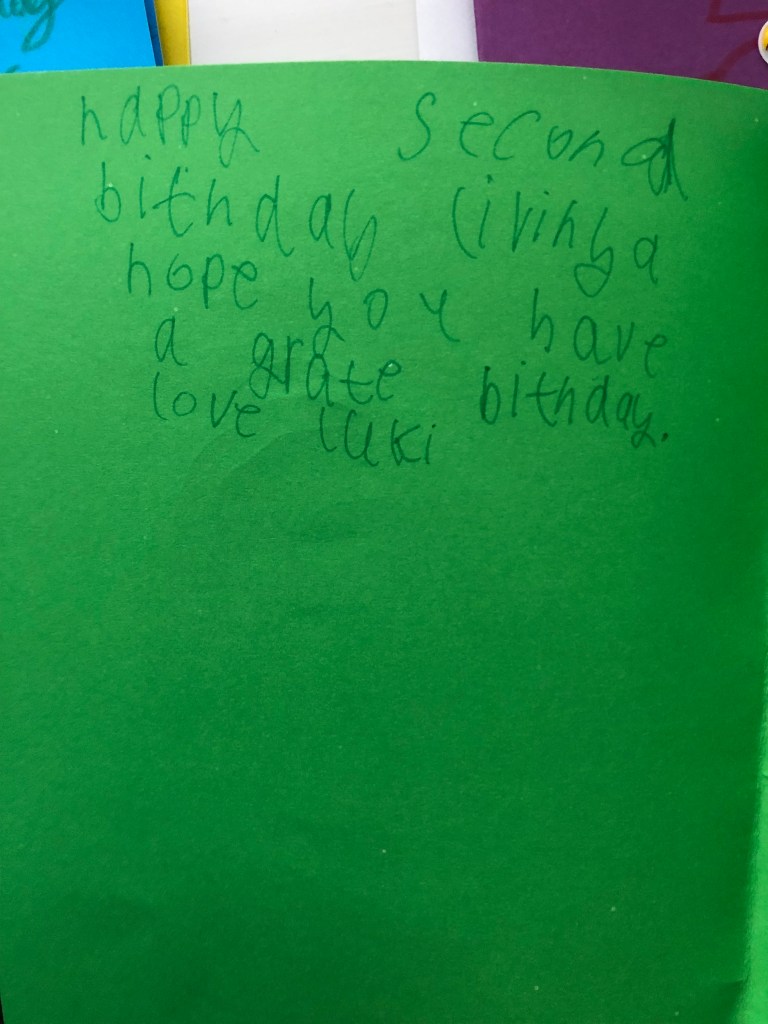 happy second
bithday livinya
hope you have
a grate bithday.
love luki